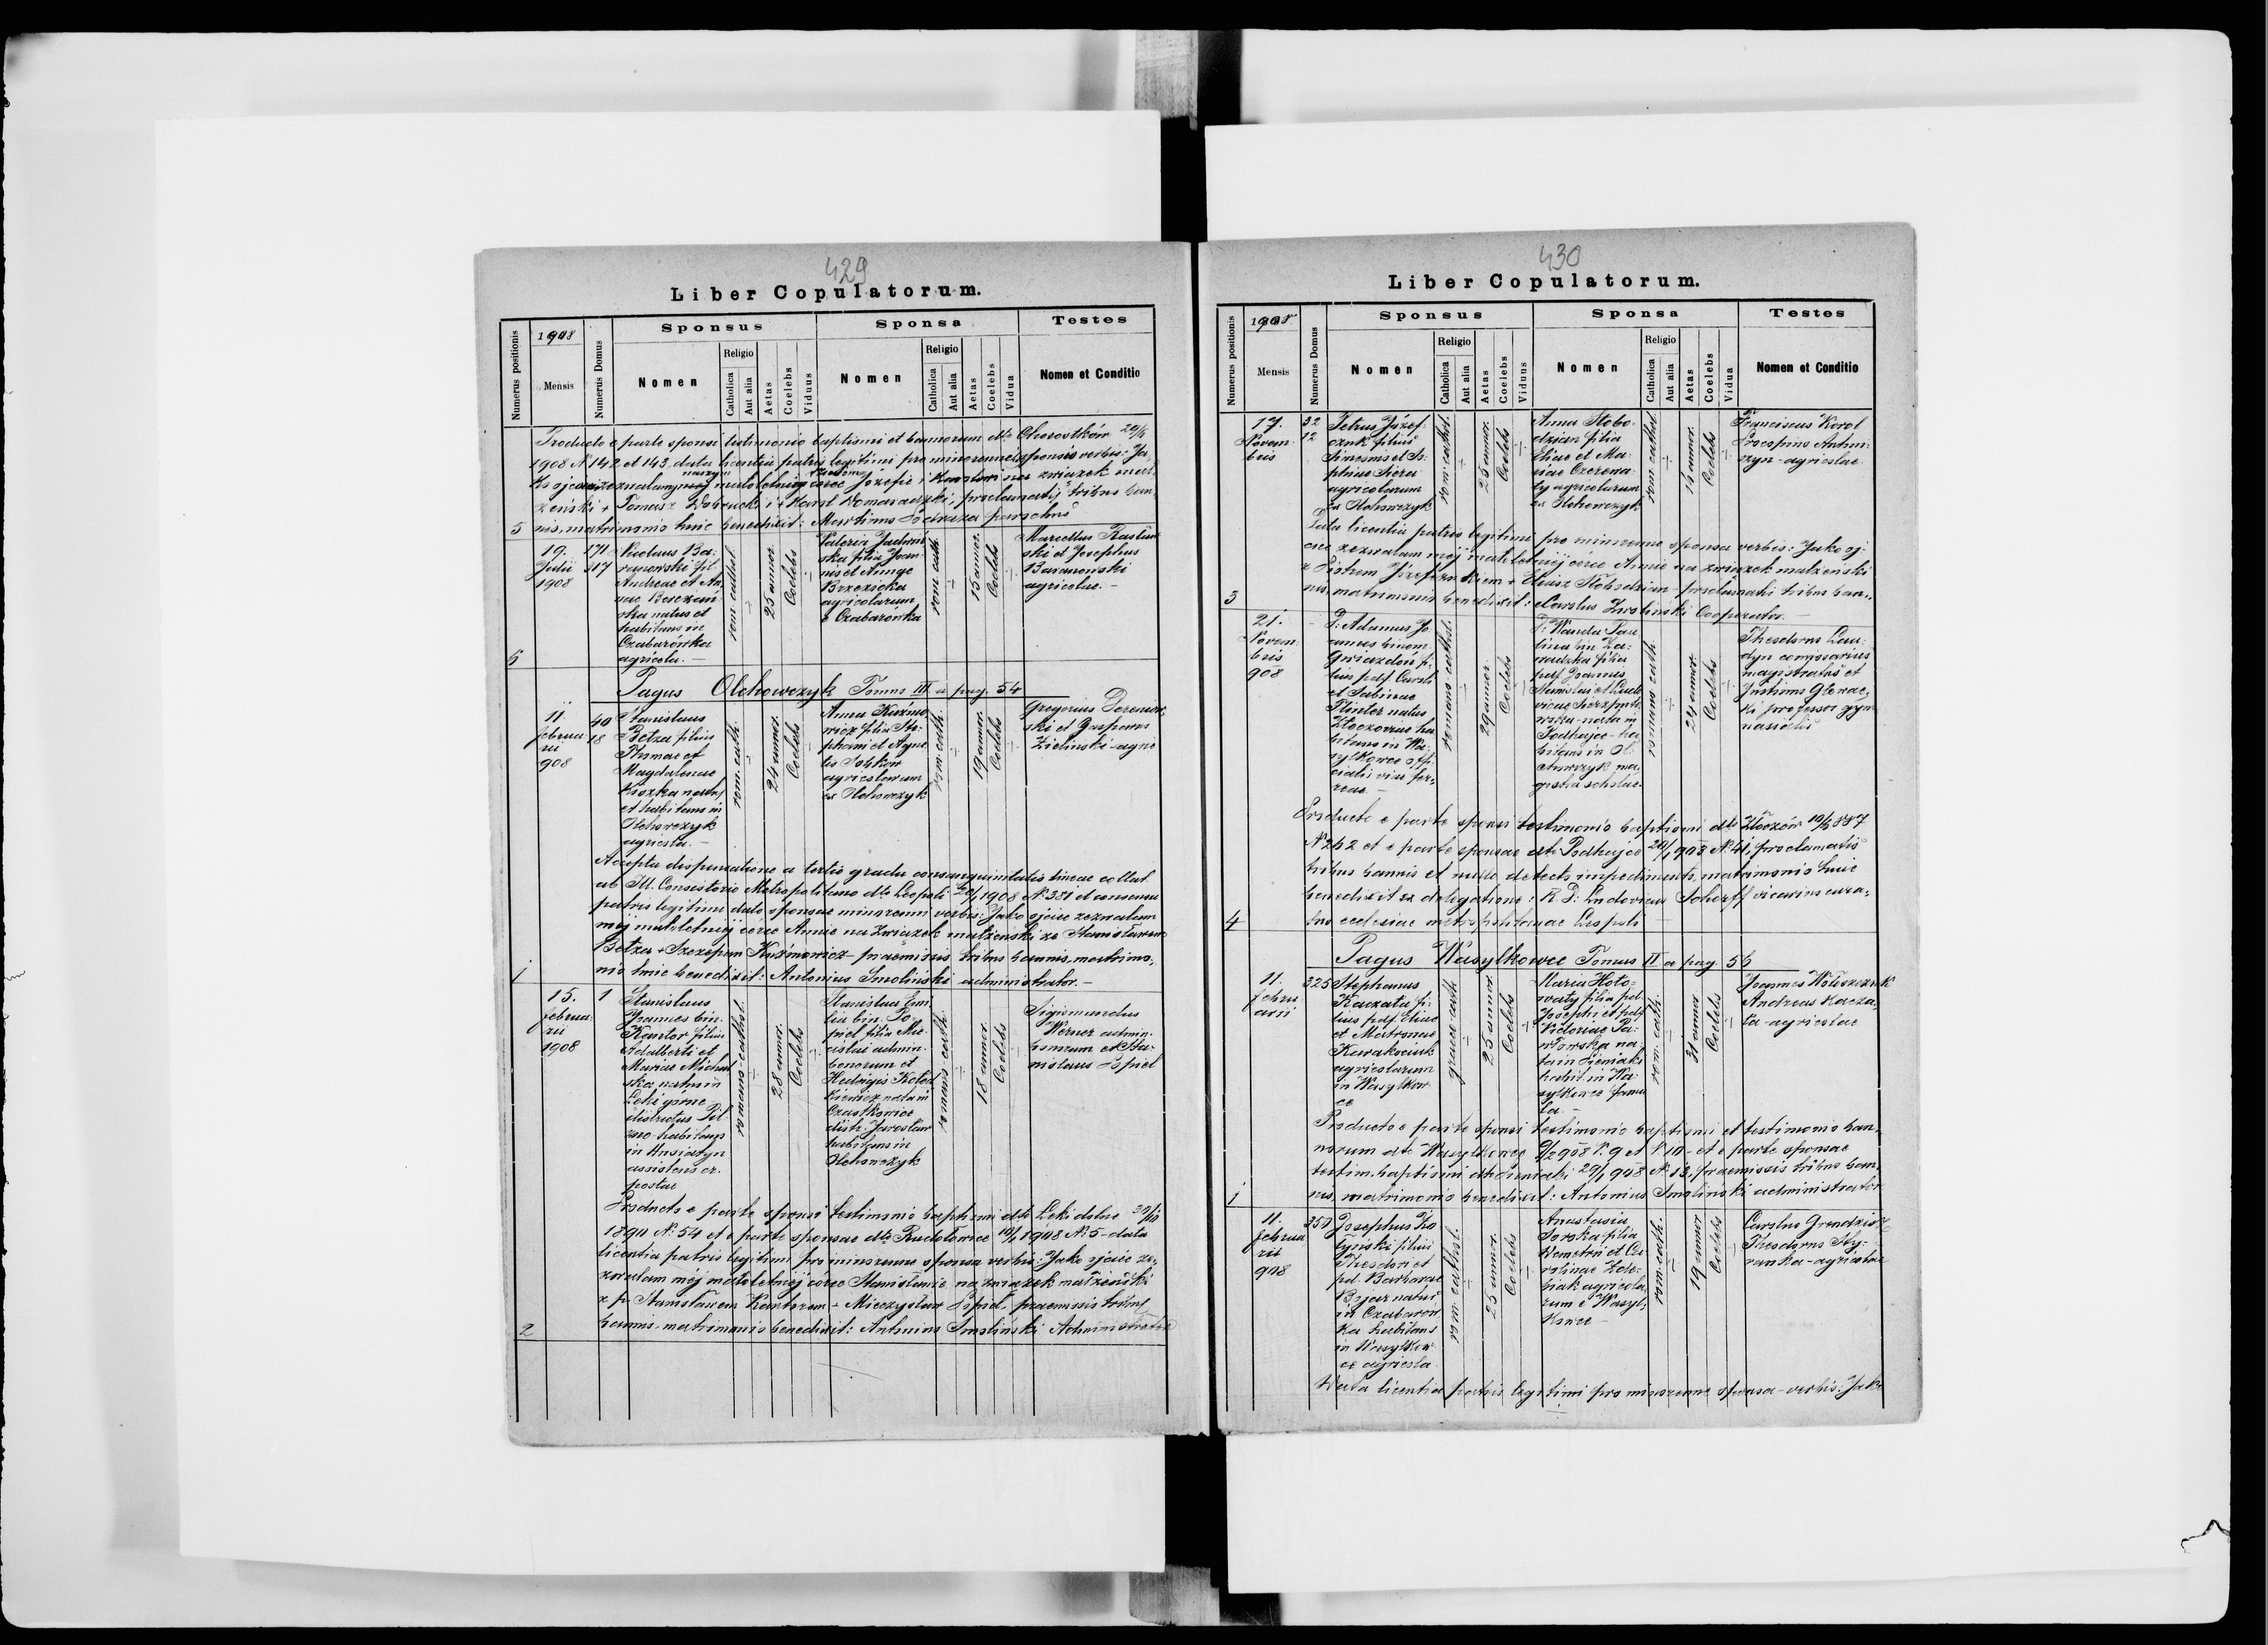 429
Liber Copulatorum.
Numerus positionis
1908
Mensis
Numerus Domus
Sponsus
Nomen
Religio
Catholica
Aut alia
Aetas
Coelebs
Viduus
Sponsa
Nomen
Religio
Catholica
Aut alia
Aetas
Coelebs
Vidua
Testes
Nomen et Conditio
Producto e parte sponsi testimonio baptismi et bannorum dto Chorostków
1908 N 142 et 143, data licentia patris legitimi pro minorenne sponsa verbis: Ja
ko ojciec zezwalam małoletniej córce Józefie na związek mał
żeński + Tomasz + Karol proclamatis tribus ban
5 nis, matrimonio huic benedixit: Martinus parochus
19.
Julii
1908
171
117
Nicolaus Ba-
ranowski fil.
Andreae et An
nae
natus et
habitans in
Czabarówka
agricola.
rom. cathol.
25 annor.
Coelebs
Valeria
ska filia Joan-
nis et Annae
Brzezicka
agricolarum
e Czabarówka
rom. cath.
Coelebs
Marcellus
ski et Josephus
Baranowski
agricolae.
6
Pagus Olchowczyk Tomus III a pag. 54
11.
februa
rii
908
40
18
Stanislaus
Betza filius
Thomae et
Magdalenae
Kozka natus
et habitans in
Olchowczyk
agricola.
rom. cath.
24 annor.
Coelebs
Anna Kuźmo
wicz filia Ste-
phani et Agne
tis
agricolarum
ex Olchowczyk
rom. cath.
19 annor.
Coelebs
Gregorius
ski et Gasparus
Zieliński agric
Accepta dispensatione a tertio gradu consanguinitatis lineae collat
ab Ill. Consistorio Metropolitano dto Leopoli 1908 N. 381 et consensu
patris legitimi dato sponsae minorenni verbis: Jako ojciec zezwalam
mej małoletniej córce Annie na związek małżeński ze Stanisławem
Betza + Szczepan Kuźmowicz - praemissis tribus bannis, matrimo,
1 nio huic benedixit: Antonius Smoliński administrator.
15.
februa
rii
1908
1
Stanislaus
Joannes bin.
Kantor filius
Adalberti et
Mariae Michal
ska natus in
Łęki górne
districtus Pil
zno habitans
in Husiatyn
assistens cr.
postae
romano-cathol.
28 annor.
Coelebs
Stanislaa Emi
lia bin. Po-
piel filia Mie-
cislai admin.
bonorum et
Hedvigis
nata in
distr. Jarosław
habitans in
Olchowczyk
romano cath.
18 annor.
Coelebs
Sigismundus
Werner admin.
bonorum et Sta-
nislaus Popiel
Producto e parte sponsi testimonio baptismi dto Łęki dolne 30/10
1890 N. 54 et e parte sponsae dto 1908 N. 5 - data
licentia patris legitimi pro minorenne sponsa verbis: Jako ojciec ze,
zwalam mej małoletniej córce Stanisławie na związek małżeński
z p. Stanisławem Kantorem + Mieczysław Popiel, praemissis tribus
2 bannis matrimonio benedixit: Antonius Smoliński Administrator
430
Liber Copulatorum.
Numerus positionis
1908
Mensis
Numerus Domus
Sponsus
Nomen
Religio
Catholica
Aut alia
Aetas
Coelebs
Viduus
Sponsa
Nomen
Religio
Catholica
Aut alia
Aetas
Coelebs
Vidua
Testes
Nomen et Conditio
17.
Novem-
bris
32
12
Petrus Józef-
czuk filius
Simeonis et
agricolarum
ex Olchowczyk
rom. cathol.
25 annor.
Coelebs
Anna Słobo-
dzian filia
Eliae et Ma-
riae
agricolarum
ex Olchowczyk
rom. cathol.
annor.
Coelebs
Franciscus Korol
agricolae
Data licentia patris legitimi pro minorenne sponsa verbis: Jako oj-
ciec zezwalam mej małoletniej córce Annie na związek małżeński
z Piotrem Józefczukiem + Eliasz Słobodzian - proclamatis tribus ban,
3 nis, matrimonio benedixit: Carolus Cooperator.
21.
Novem-
bris
908
P. Adamus Jo
annes binom.
Gwiazdoń fi-
lius pdf. Caroli
et Sabinae
Plinter natus
Złoczoviae ha
bitans in Wa-
sylkowce offi
cialis viae fer-
reae.
romano cathol.
29 annor.
Coelebs
P. Wanda Pau
lina bin.
filia
pdf. Joannis
Stanislai et Ludo
vicae
nata in
Podhajce - ha
bitans in Ol
chowczyk ma-
gistra scholae.
romano cath.
24 annor.
Coelebs
Theodorus Lan-
dyn comissarius
magistratus et
Justinus
ki professor gym
nasialis
Producto e parte sponsi testimonio baptismi dto Złoczów 1887
N 262 et e parte sponsae dto Podhajce 1908 N. 41, proclamatis
tribus bannis et nullo detecto impedimento, matrimonio huic
benedixit ex delegatione: R. D. Ludovicus Scherff vicarius cura,
4 tus ecclesiae metropolitanae Leopoli
Pagus Wasylkowce Tomus II a pag. 56
11.
febru
arii
325
Stephanus
Kaczała fi-
lius pdf. Eliae
et Matronae
agricolarum
in Wasylkow
ce
graeco cath.
25 annor.
Coelebs
Maria Hoło-
waty filia pdf.
Josephi et pdf.
Victoriae Pa-
włowska na-
ta in Pieniaki
habit. in Wa-
sylkowce famu
la.
rom. cath.
31 annor
Coelebs
Joannes
Andreas Kacza,
ła - agricolae
Producto e parte sponsi testimonio baptismi et testimonio ban,
norum dto Wasylkowce 9/2 908 N. 9 et N 10 - et e parte sponsae
testim. baptismi dto Pieniaki 29/1 908 N. 13, praemissis tribus ban,
1 nis, matrimonio benedixit: Antonius Smoliński administrator
11.
februa
rii
908
350
Josephus
filius
Theodori et
pd. Barbarae
Bojar natus
in Czabarów
ka habitans
in Wasylkow
ce agricola
rom. cathol.
25 annor.
Coelebs
Anastasia
filia
Demetrii et Ca
rolinae
agricola,
rum e Wasyl,
kowce
rom. cath.
19 annor
Coelebs
Carolus
Theodorus
agricolae
Data licentia patris legitimi pro minorenne sponsa - verbis: Jako